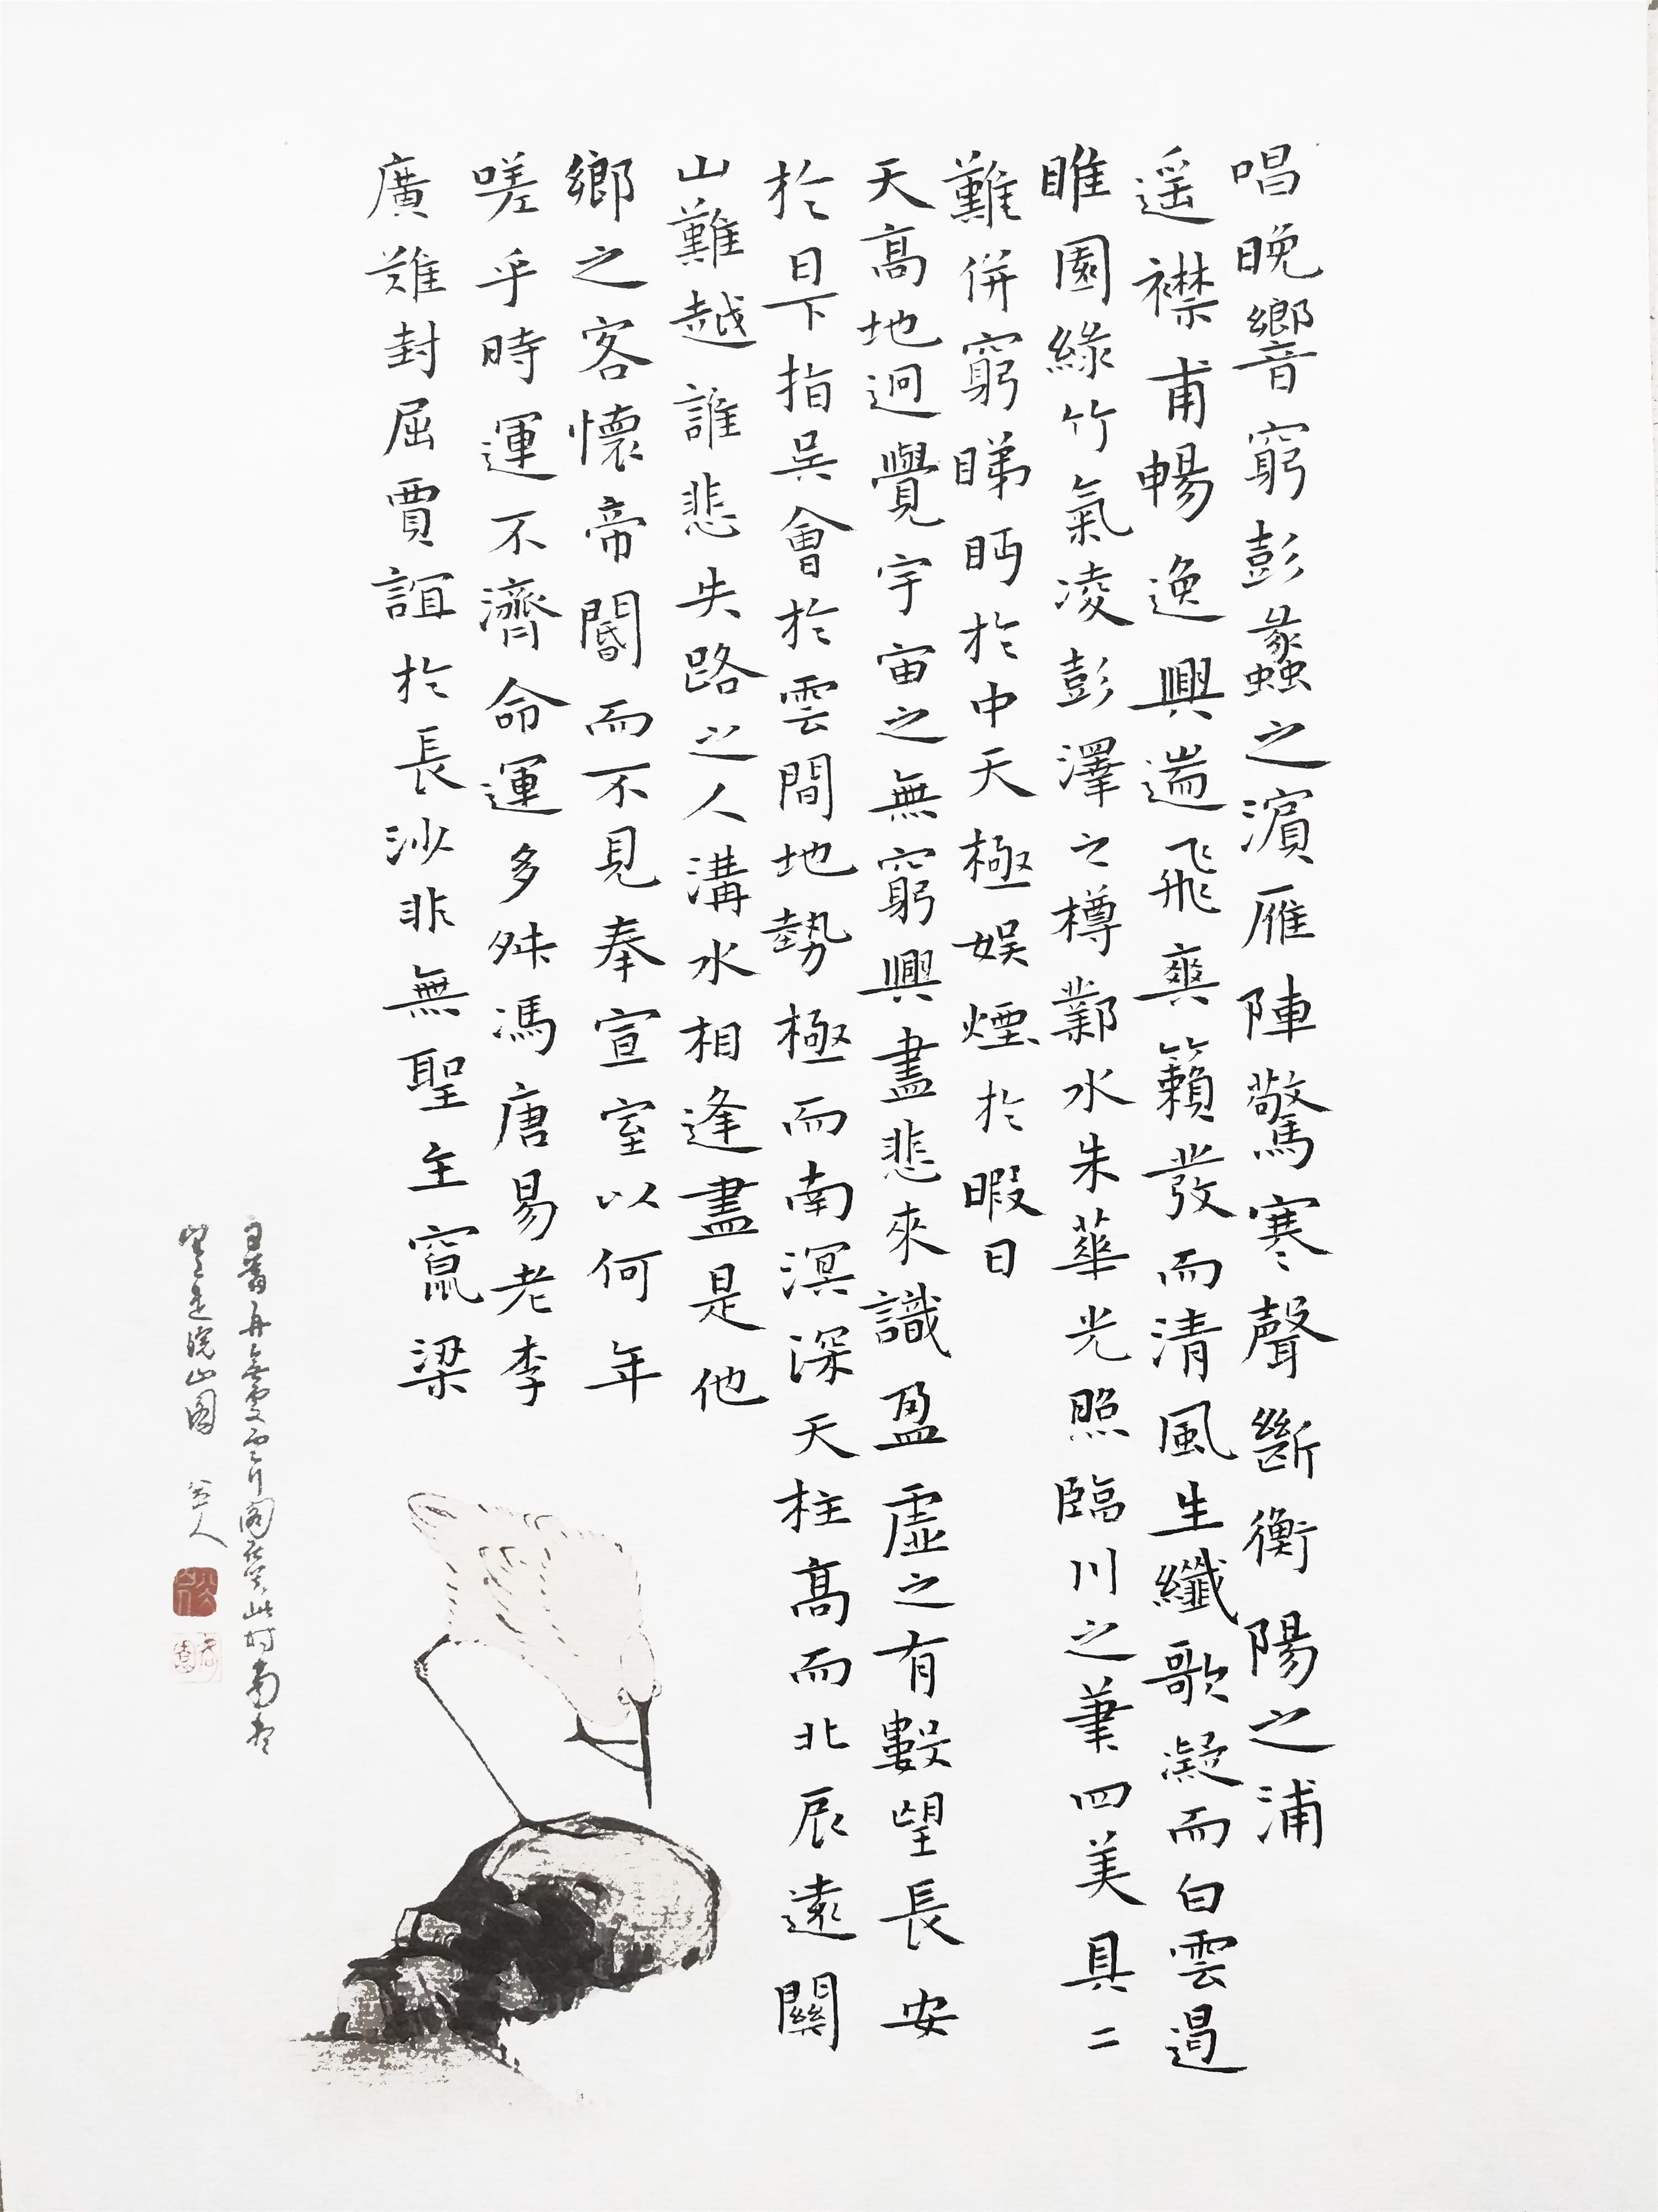 唱晚響窮彭蠡之濵雁陣驚寒聲斷衡陽之浦
遥襟甫暢逸興遄飛爽籟發而清風生纖歌凝而白雲遏
睢園緑竹氣凌彭澤之樽鄴水朱華光照臨川之筆四美具二
難併窮睇眄於中天極娱煙於暇日
天高地迥覺宇宙之無窮興盡悲來識盈虚之有數望長安
於日下指吴會於雲間地勢極而南溟深天柱高而北辰遠關
山難越誰悲失路之人溝水相逢盡是他
鄉之客懷帝閽而不見奉宣室以何年
嗟乎時運不濟命運多舛馮唐易老李
廣難封屈賈誼於長沙非無聖主竄梁